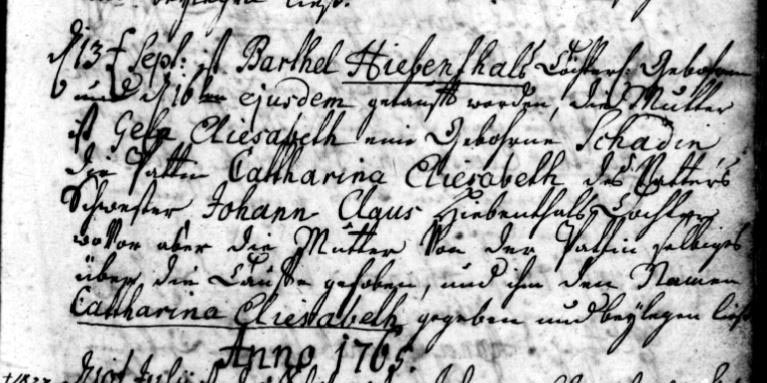 beylegen ließ.
d 13t Sept: ist Barthel Hiebenthals Töchterl: Gebohren
und d 16ten ejusdem getauft worden, die Mutter
ist Gela Eliesabeth eine Gebohrne Schadin
die Pattin Catharina Eliesabeth des Vatters
Schwester Johann Claus Hiebenthals Tochter
wovor aber die Mutter von der Pattin selbiges
über die Tauffe gehoben, und ihm den Namen
Catharina Eliesabeth gegeben und beylegen ließ
Anno 1765.